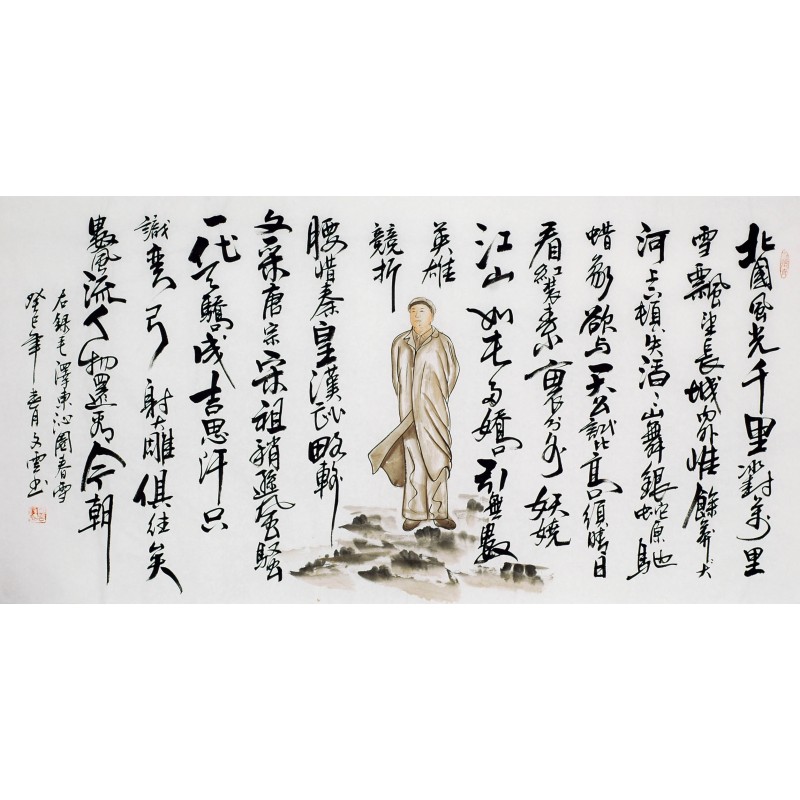 北國風光千里冰封萬里
雪飄望長城內外惟餘莽大
河上下頓失滔〻山舞銀蛇原馳
蜡象欲与天公試比高須晴日
看紅裝素裹分外妖娆
江山如此多嬌引無數
英雄
競折
腰惜秦皇漢武略輸
文采唐宗宋祖稍遜風騷
一代天驕成吉思汗只
識彎弓射大雕俱往矣
數風流人物還看今朝
右錄毛澤東沁園春雪
癸巳年春月文雲书